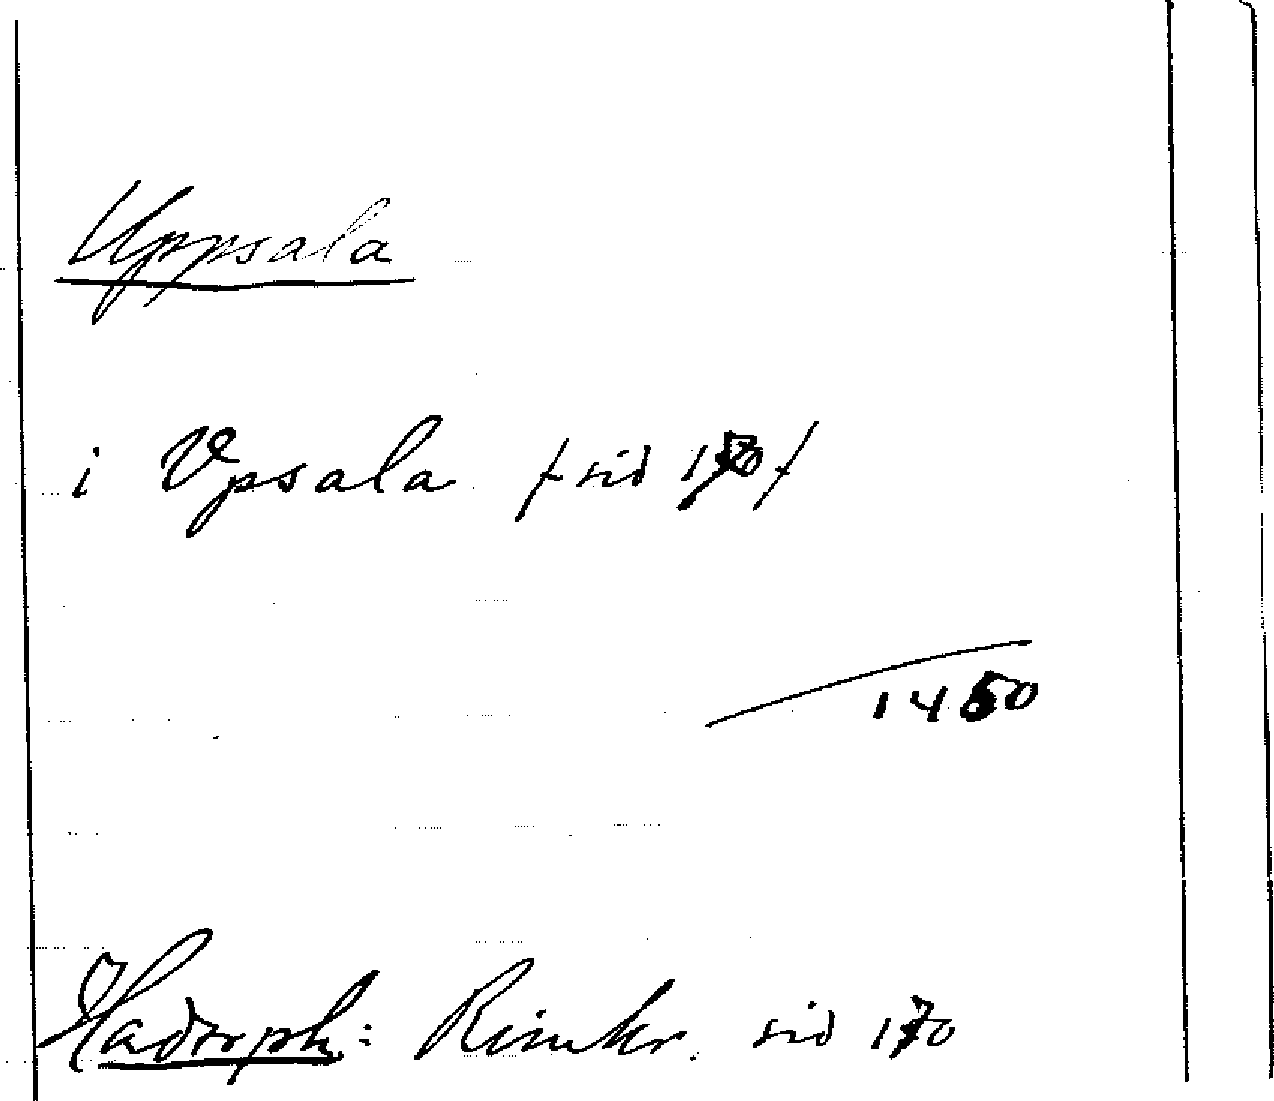 Uppsala
i Vpsala /sid 170/
1450
Hadorph: Rimkr. sid 170